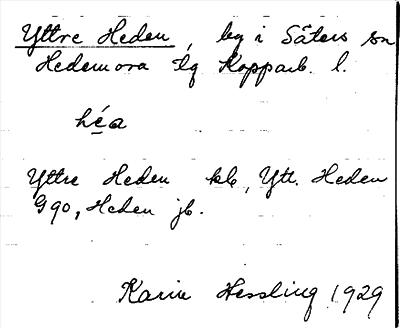 Yttre Heden, by i Säters sn
Hedemora tg Kopparb. l.
héa
Yttre Heden kb, Ytt. Heden
G90, Heden jb.
Karin Hessling 1929